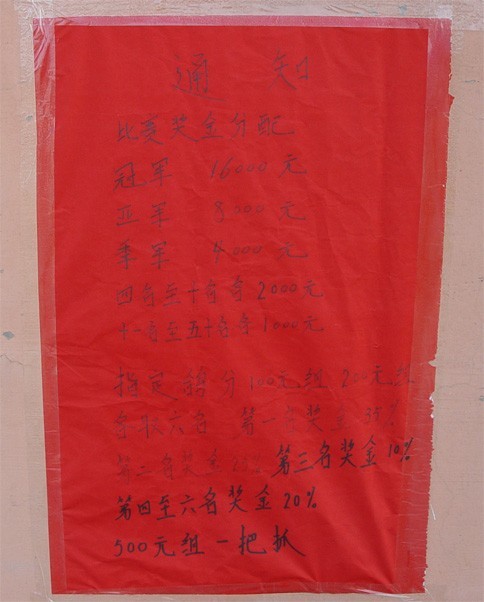 通知
比赛奖金分配
冠军 16000元
亚军 8000元
季军 4000元
四名至十名每 2000元
十一名至五十名每 1000元
指定鸽分100元组 200元组
各取六名 第一名奖金 35%
第二名奖金 第三名奖金10%
第四至六名奖金20%
500元组一把抓